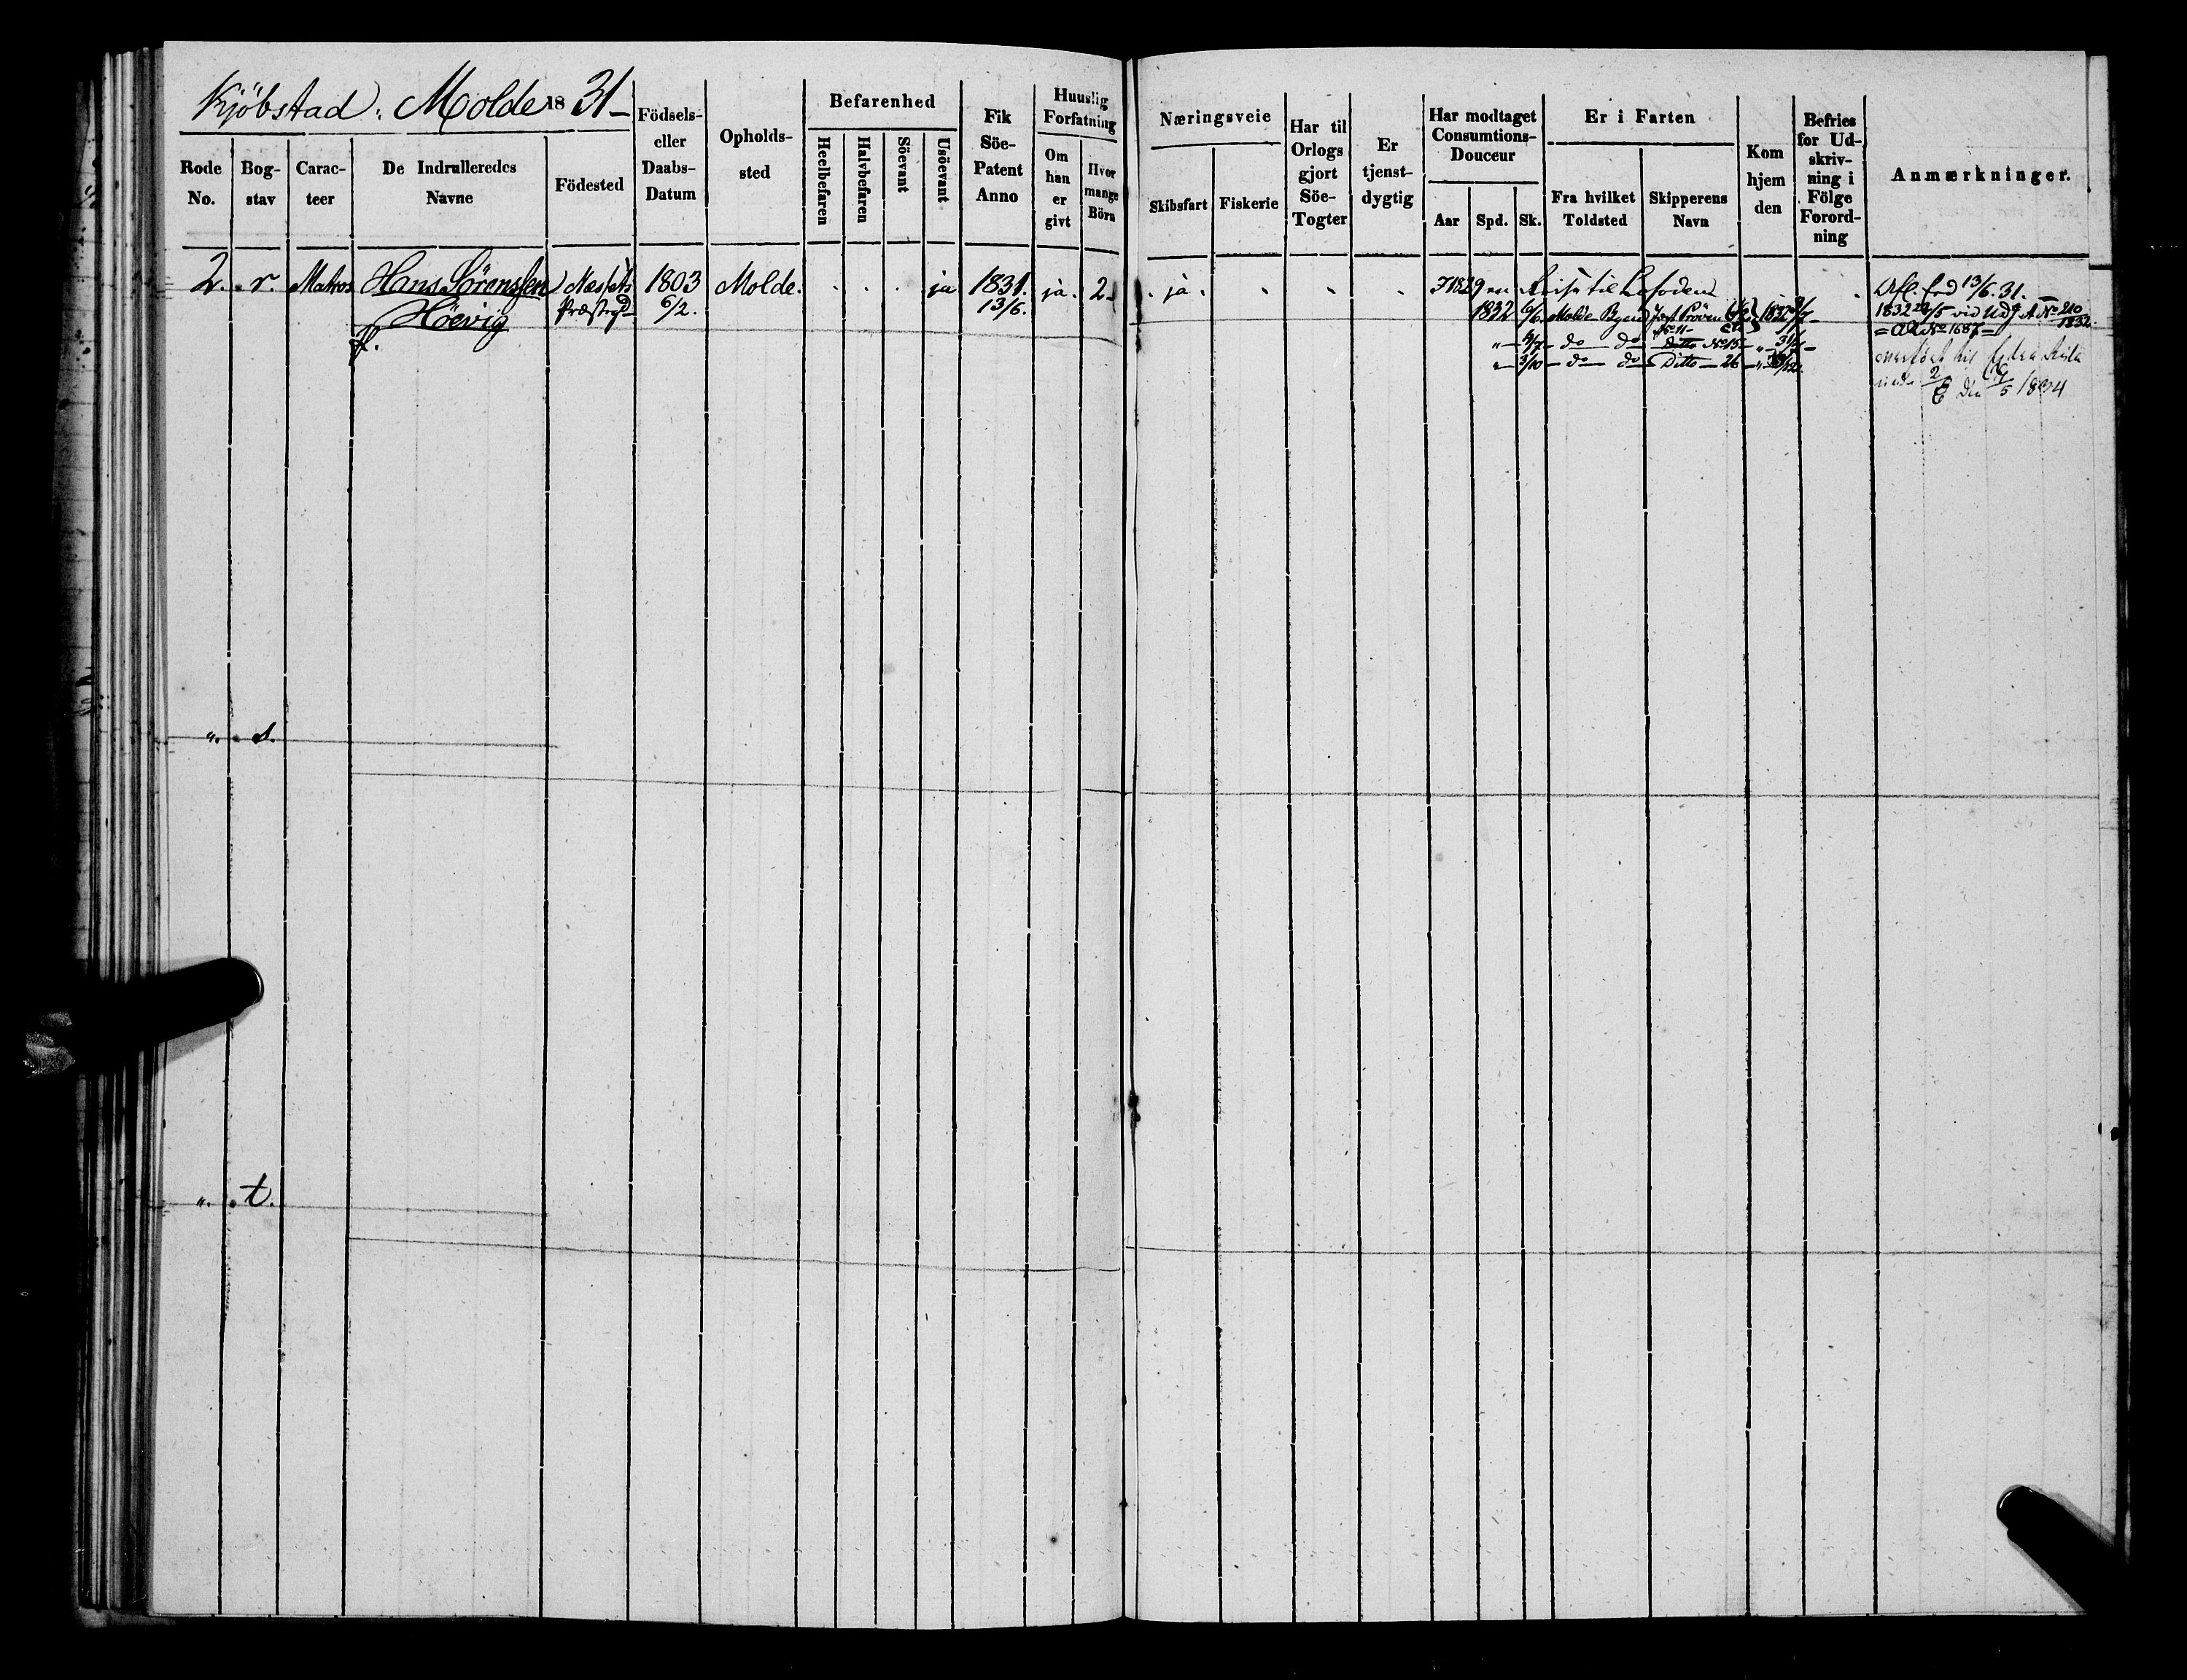 Kjöbstad: Molde 18 31-
Rode No.
Bog-stav
Carac-teer
De Indrulleredes Navne
Födested
Födsels- eller Daabs-Datum
Opholds-sted
Befarenhed
Heelbefaren
Halvbefaren
Söevant
Usöevant
Fik Söe-Patent Anno
Huuslig Forfatning
Om han er givt
Hvor mange Börn
Næringsveie
Skibsfart
Fiskerie
Har til Orlogs gjort Söe-Togter
Er tjenst-dygtig
Har modtaget Consumtions-Douceur
Aar
Spd.
Sk.
Er i Farten
Fra hvilket Toldsted
Skipperens Navn
Kom hjem den
Befries for Ud-skriv-ning i Fölge Forord-ning
Anmærkninger.
2. r. Matros Hans Sörenssen Nessets 1803 Molde. ja 1831. ja. 2 ja I 1829 en Reise til Lofoden Afl. Eed 13/6. 31.
Höevig Præstegd 6/2. 13/6. 1832 6/6 Molde 1832 1832 /5 ved Udg. A No 210
f. No 11 1832
= No 1687
" do do Ditto No 15 "
" 3/10 do do Ditto 26 "
2 den 5 1834
". s.
". t.